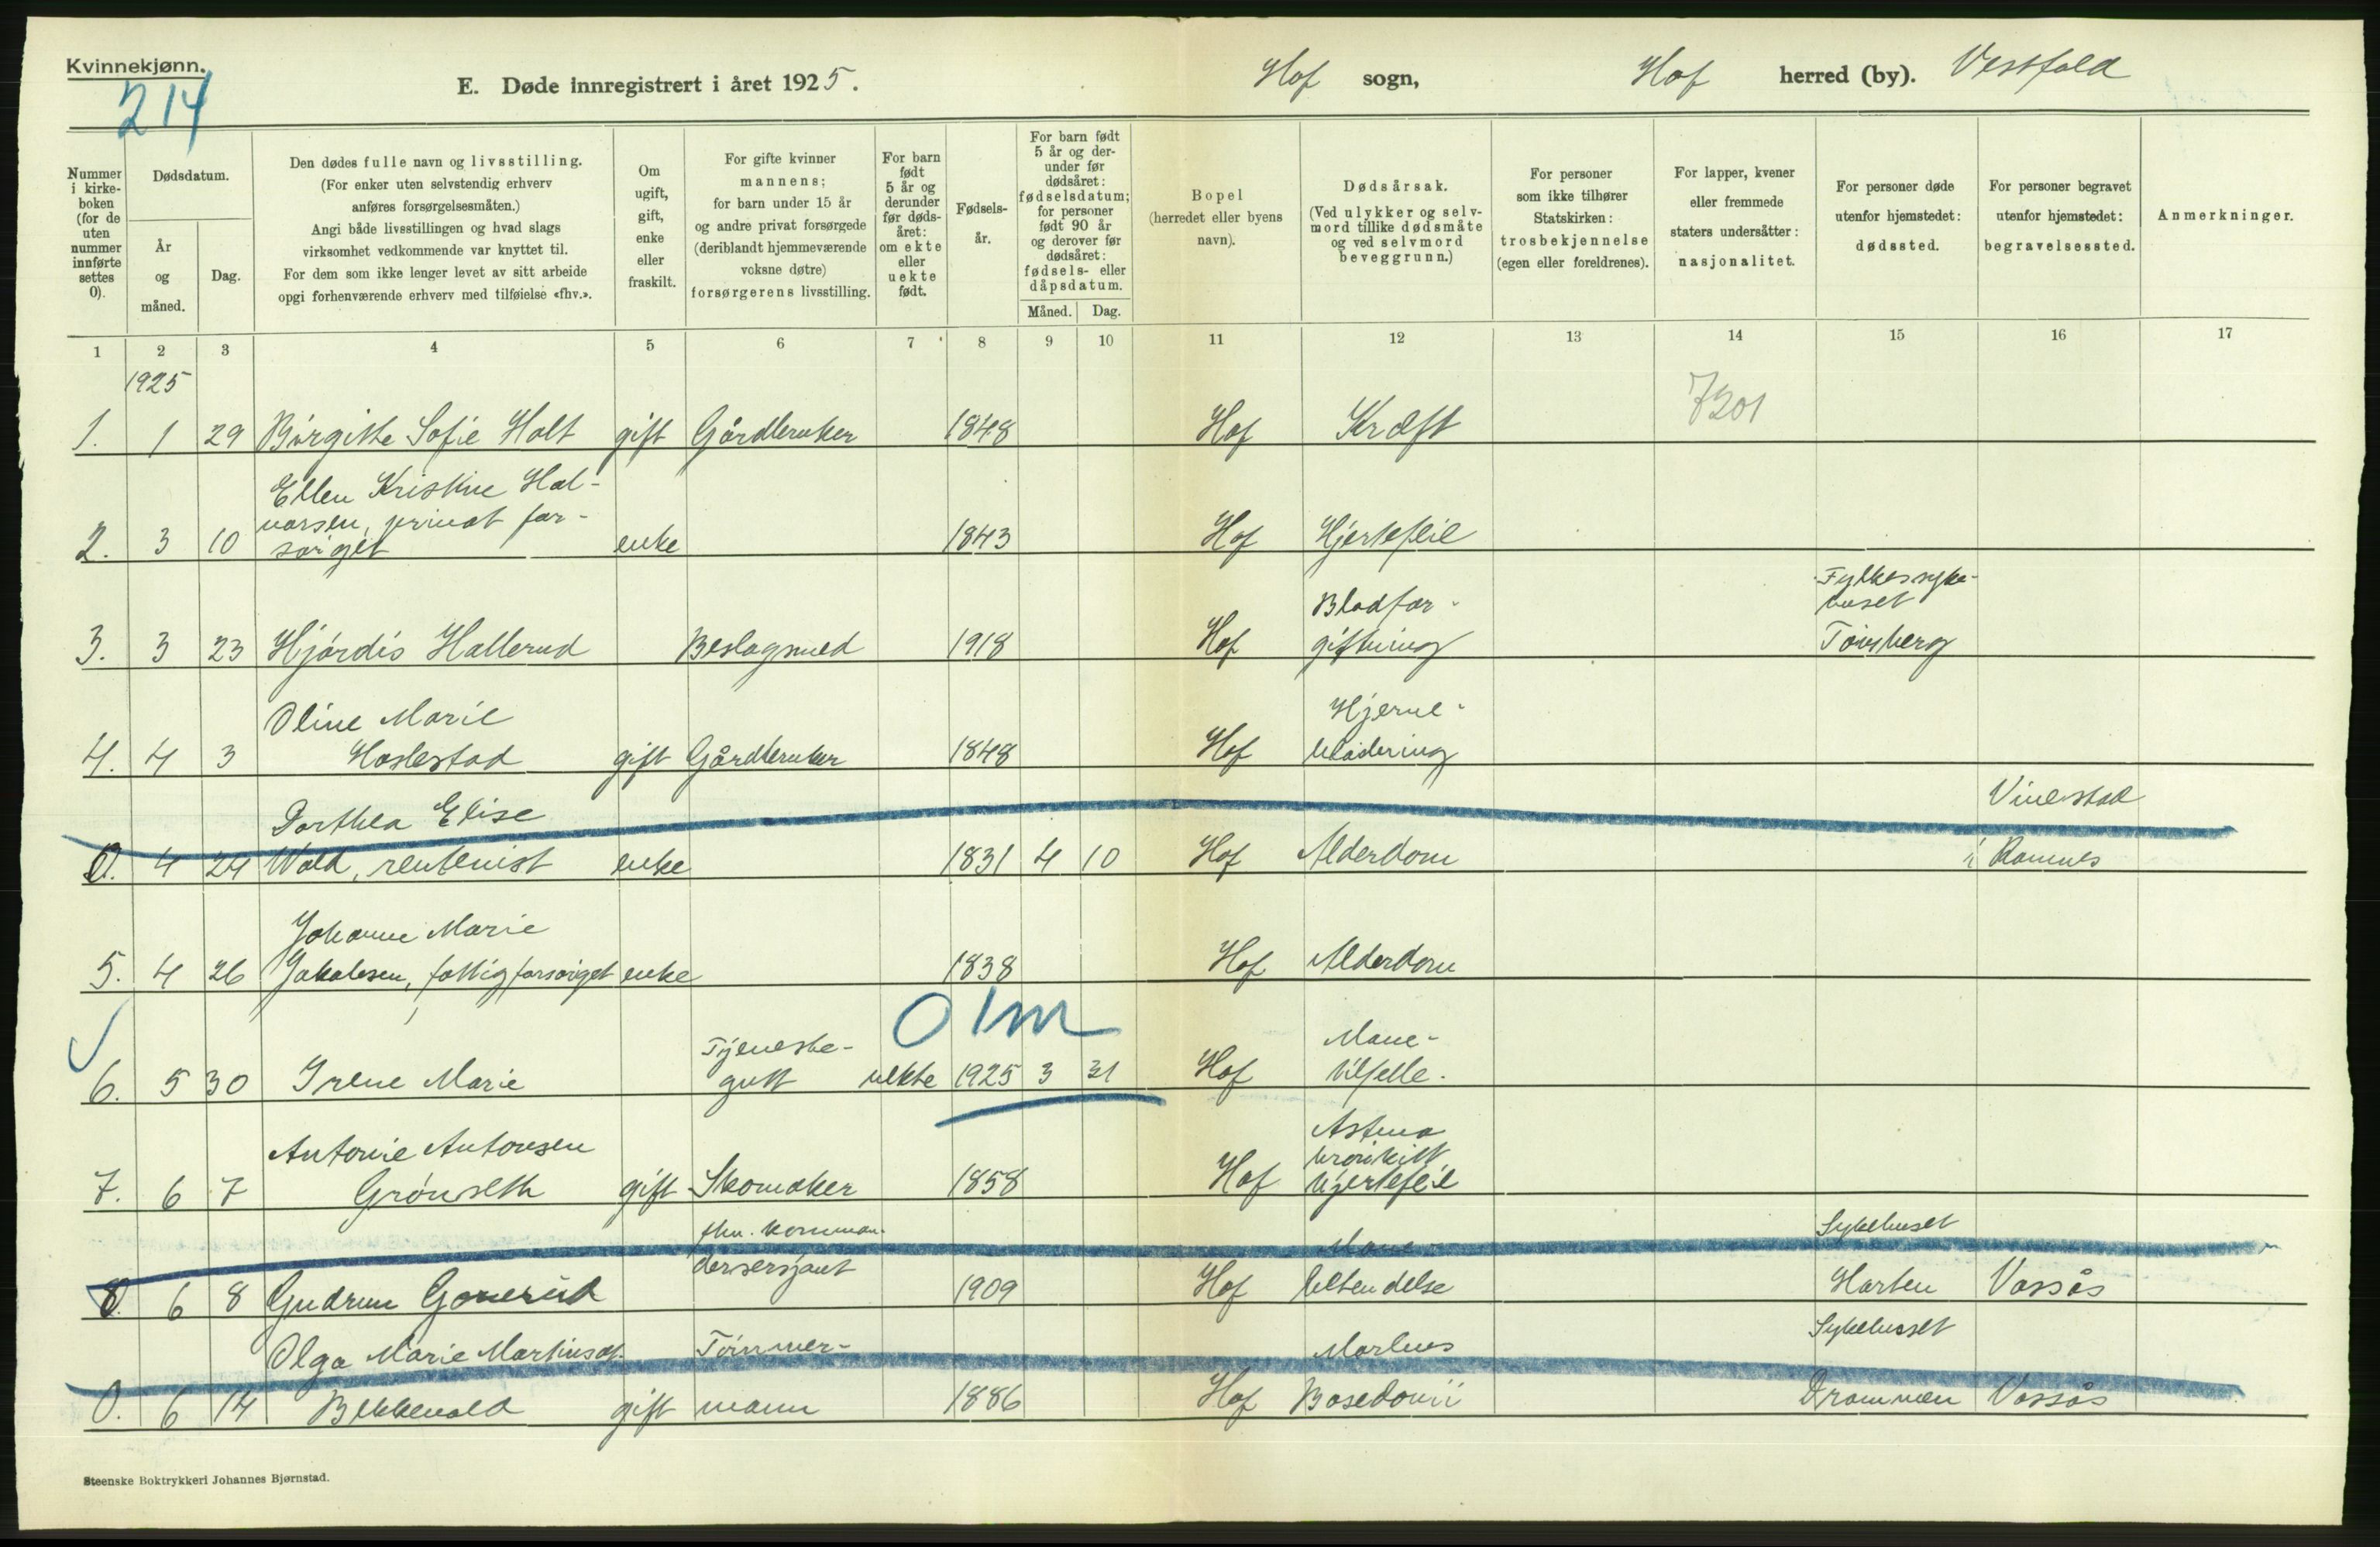 Kvinnekjønn.
214
E. Døde innregistrert i året 1925.
Hof sogn,
Hof herred (by). Vestfold
Nummer
i kirke-
boken
(for de
uten
nummer
innførte
settes
0).
Dødsdatum.
År
og
måned.
Dag.
Den dødes fulle navn og livsstilling.
(For enker uten selvstendig erhverv
anføres forsørgelsesmåten.)
Angi både livsstillingen og hvad slags
virksomhet vedkommende var knyttet til.
For dem som ikke lenger levet av sitt arbeide
opgi forhenværende erhverv med tilføielse «fhv.».
Om
ugift,
gift,
enke
eller
fraskilt.
For gifte kvinner
mannens;
for barn under 15 år
og andre privat forsørgede
(deriblandt hjemmeværende
voksne døtre)
forsørgerens livsstilling.
For barn
født
5 år og
derunder
før døds-
året:
om ekte
eller
uekte
født.
Fødsels-
år.
For barn født
5 år og der-
under før
dødsåret:
fødselsdatum;
for personer
født 90 år
og derover før
dødsåret:
fødsels- eller
dåpsdatum.
Måned. Dag.
Bopel
(herredet eller byens
navn).
Dødsårsak.
(Ved ulykker og selv-
mord tillike dødsmåte
og ved selvmord
beveggrunn.)
For personer
som ikke tilhører
Statskirken:
trosbekjennelse
(egen eller foreldrenes).
For lapper, kvener
eller fremmede
staters undersåtter:
nasjonalitet.
For personer døde
utenfor hjemstedet:
dødssted.
For personer begravet
utenfor hjemstedet:
begravelsessted.
Anmerkninger.
1 2 3 4 5 6 7 8 9 10 11 12 13 14 15 16 17
1925
7301
1. 1 29 Birgitte Sofie Holt gift Gårdbruker 1848 Hof Kræft
Ellen Kristine Hal-
vorsen, privat for-
2. 3 10 sørget enke 1843 Hof Hjertefeil
Blodfor- Fylkessyke-
huset
3. 3 23 Hjördis Hallerud Beslagsmed 1918 Hof giftning Tønsberg
Oline Marie Hjerne-
4. 4 3 Haslestad gift Gårdbruker 1848 Hof blødering
Dorthea Elise Vivestad
0. 4 24 Wold, rentenist enke 1831 4 10 Hof Alderdom i Ramnes
Johanne Marie
5. 4 26 Jakobsen, fattigforsørget enke 1838 Hof Alderdom
0 1m
Tjeneste- Mave-
6. 5 30 Irene Marie gutt uekte 1925 3 31 Hof tilfelle.
Antonie Antonsen Astma
bronkitt
7. 6 7 Grönseth gift Skomaker 1858 Hof hjertefeil
fhv. komman- Mave- Sykehuset
dersersjant
0. 6 8 Gudrun Gonerud 1909 Hof betendelse Horten Vassås
Olga Marie Martinsdt. Tømmer- Morbus Sykehuset
0. 6 14 Bekkevold gift mann 1886 Hof Basedowii Drammen Vassås
Steenske Boktrykkeri Johannes Bjørnstad.